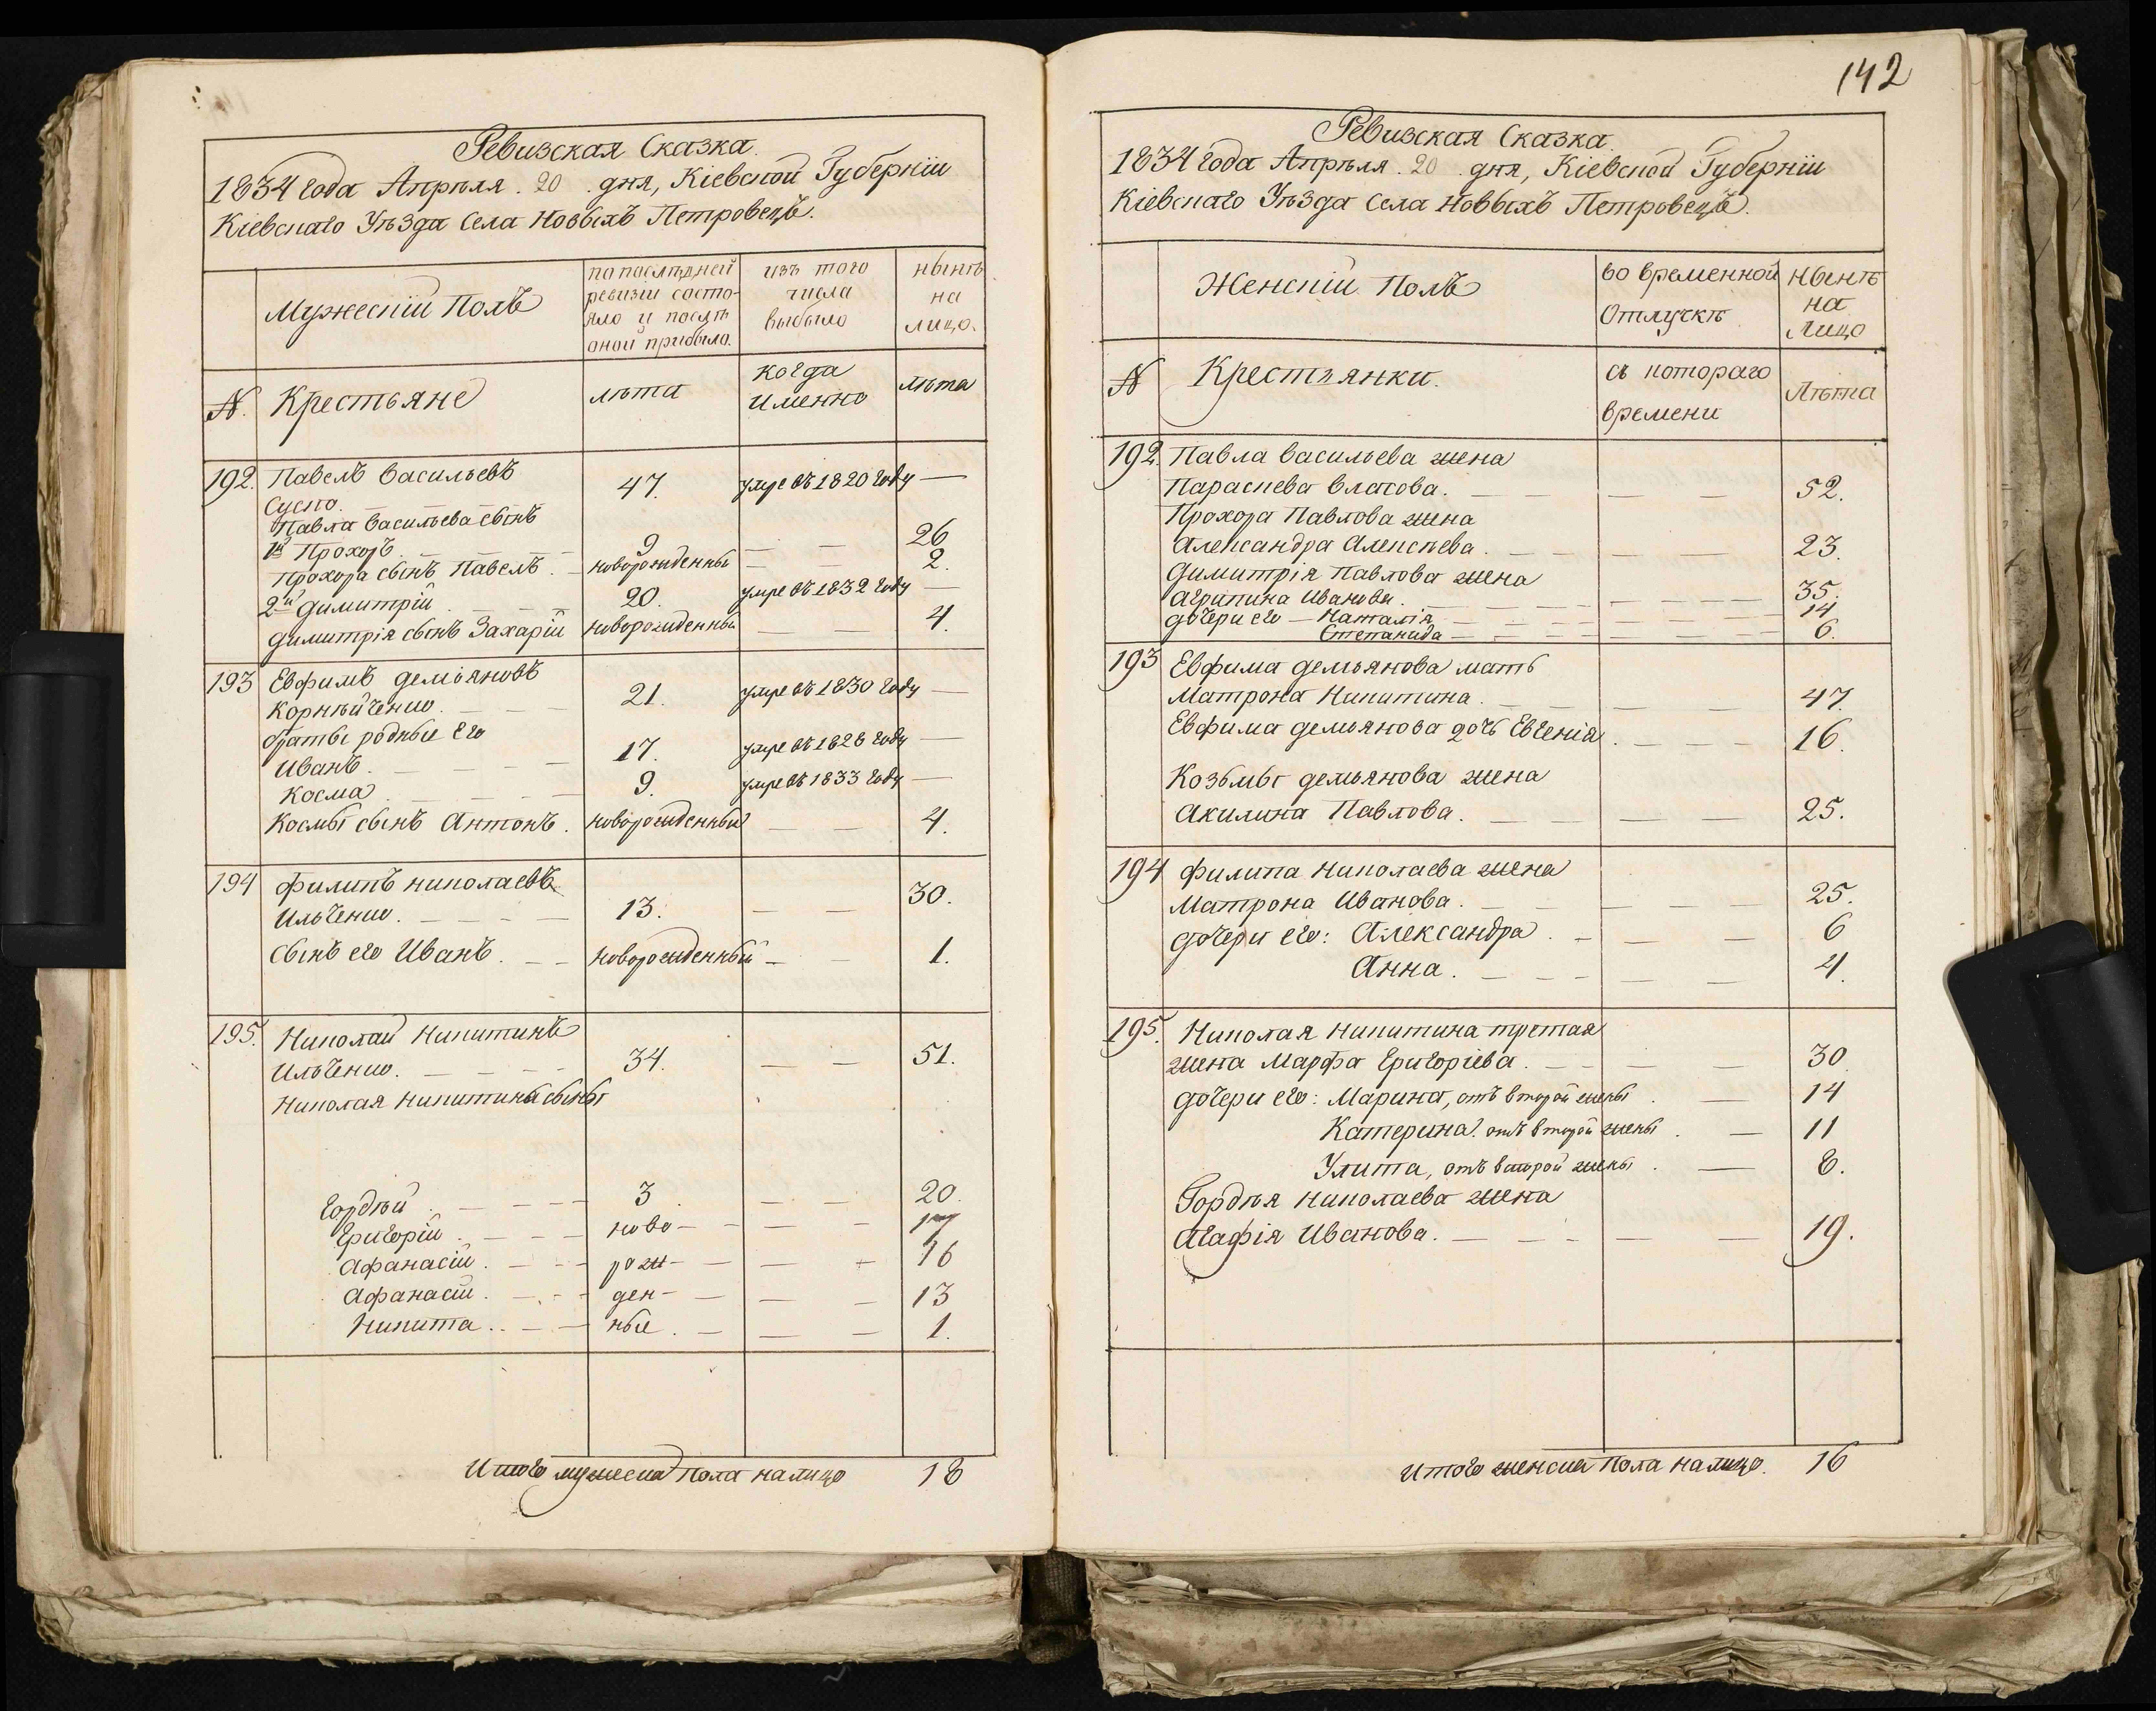 Ревизская Сказка.
1834 года Апрѣля 20 дня, Кіевской Губерніи
Кіевскаго Уѣзда Села Новыхъ Петровецъ.
Мужескій Полъ
по послѣдней ревизіи состо-
яло и послѣ оной прибыло.
изъ того числа выбыло
нынѣ на лицо.
№. Крестьяне лѣта когда именно лѣта
192. Павелъ Васильевъ
Суско. 47. умре въ 1820 году —
Павла Васильева сынъ
1й Прохоръ 9 26
Прохора сынъ Павелъ новорожденный 2.
2й Димитрій 20. умре въ 1832 году —
Димитрія сынъ Захарій новорожденный 4.
193 Евфимъ Демьяновъ
Корнѣйченко 21. умре въ 1830 году —
братьі родные его
Иванъ. 17. умре въ 1828 году —
Косма 9. умре въ 1833 году —
Космы сынъ Антонъ. новорожденный 4.
194 Филипъ Николаевъ
Ильченко. 13. 30.
Сынъ его Иванъ. новорожденный 1.
195. Николай Никитинъ
Ильченко. 34. 51.
Николая Никитина сыны
Гордѣй 3 20.
Григорій ново- 17
Афанасій рож- 16
Афанасій ден- 13
Никита ные. 1.
Итого мужеска Пола налицо 18
142
Ревизская Сказка.
1834 года Апрѣля 20 дня, Кіевской Губерніи
Кіевскаго Уѣзда Села Новыхъ Петровецъ.
Женскій Полъ
во временной Отлучкѣ
нынѣ на Лицо
№ Крестьянки. съ котораго времени Лѣта
192. Павла Васильева жена
Параскева Власова. 52.
Прохора Павлова жена
Александра Алексѣева. 23.
Димитрія Павлова жена
Агрипина Иванова. 35.
дочери его — Наталія 14
Степанида 6.
193 Евфима Демьянова мать
Матрона Никитина. 47.
Евфима Демьянова дочь Евгенія 16.
Козьмы Демьянова жена
Акилина Павлова. 25.
194 Филипа Николаева жена
Матрона Иванова. 25.
дочери его: Александра 6
Анна. 4.
195. Николая Никитина третая
жена Марфа Григоріева. 30
дочери его: Марина, отъ второй жены 14
Катерина. отъ второй жены 11
Улита, отъ второй жены 8.
Гордѣя Николаева жена
Агафія Иванова. 19.
Итого женска Пола налицо. 16